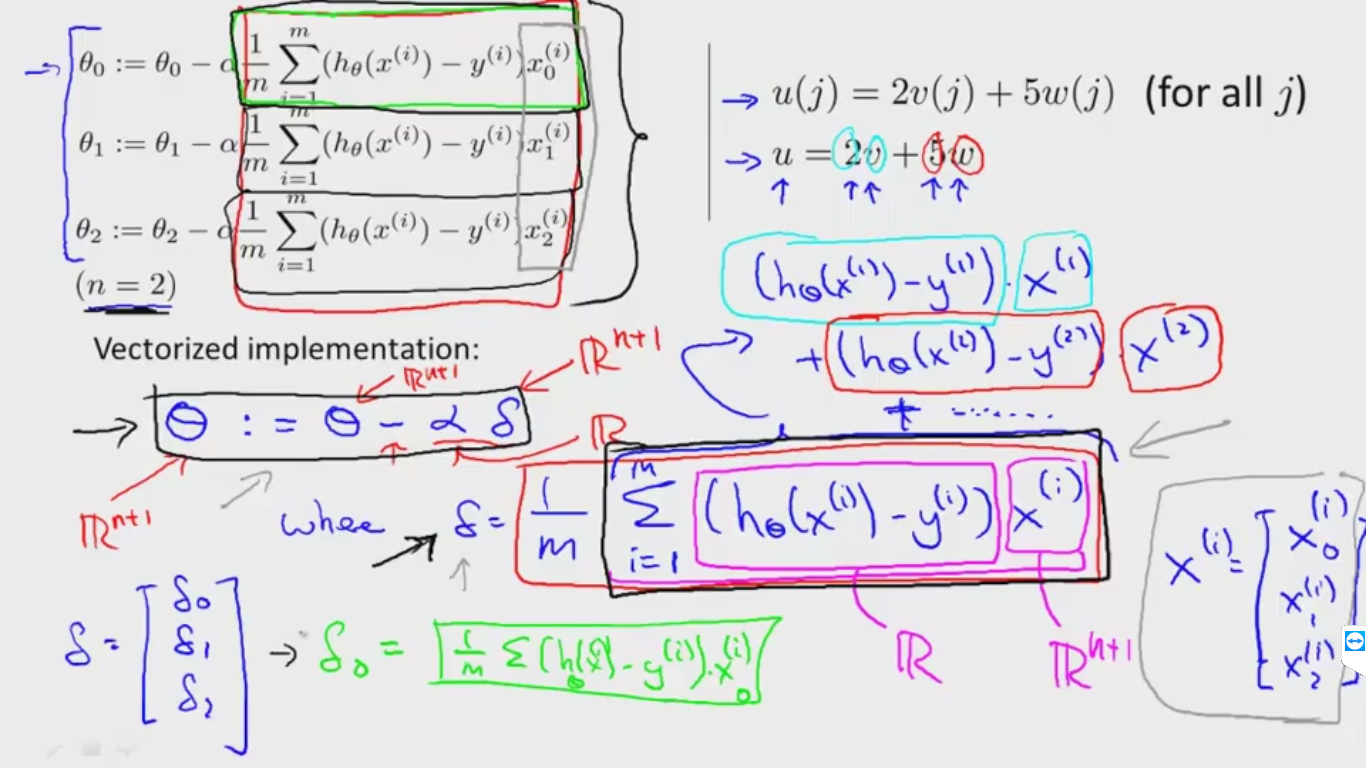 θ₀ := θ₀ − α 1/m ∑ᵢ₌₁ᵐ (hθ(x⁽ⁱ⁾) − y⁽ⁱ⁾) x₀⁽ⁱ⁾
θ₁ := θ₁ − α 1/m ∑ᵢ₌₁ᵐ (hθ(x⁽ⁱ⁾) − y⁽ⁱ⁾) x₁⁽ⁱ⁾
θ₂ := θ₂ − α 1/m ∑ᵢ₌₁ᵐ (hθ(x⁽ⁱ⁾) − y⁽ⁱ⁾) x₂⁽ⁱ⁾
(n = 2)
u(j) = 2v(j) + 5w(j) (for all j)
u = 2v + 5w
(hθ(x⁽¹⁾) − y⁽¹⁾) · x⁽¹⁾
+ (hθ(x⁽²⁾) − y⁽²⁾) · x⁽²⁾
+ ........
Vectorized implementation:
ℝⁿ⁺¹
ℝⁿ⁺¹
θ := θ − α δ
ℝ
ℝⁿ⁺¹
where δ = 1/m ∑ᵢ₌₁ᵐ (hθ(x⁽ⁱ⁾) − y⁽ⁱ⁾) x⁽ⁱ⁾
ℝ
ℝⁿ⁺¹
x⁽ⁱ⁾ = [x₀⁽ⁱ⁾
x₁⁽ⁱ⁾
x₂⁽ⁱ⁾]
δ = [δ₀
δ₁
δ₂]
→ δ₀ = 1/m ∑ (hθ(x⁽ⁱ⁾) − y⁽ⁱ⁾) · x₀⁽ⁱ⁾